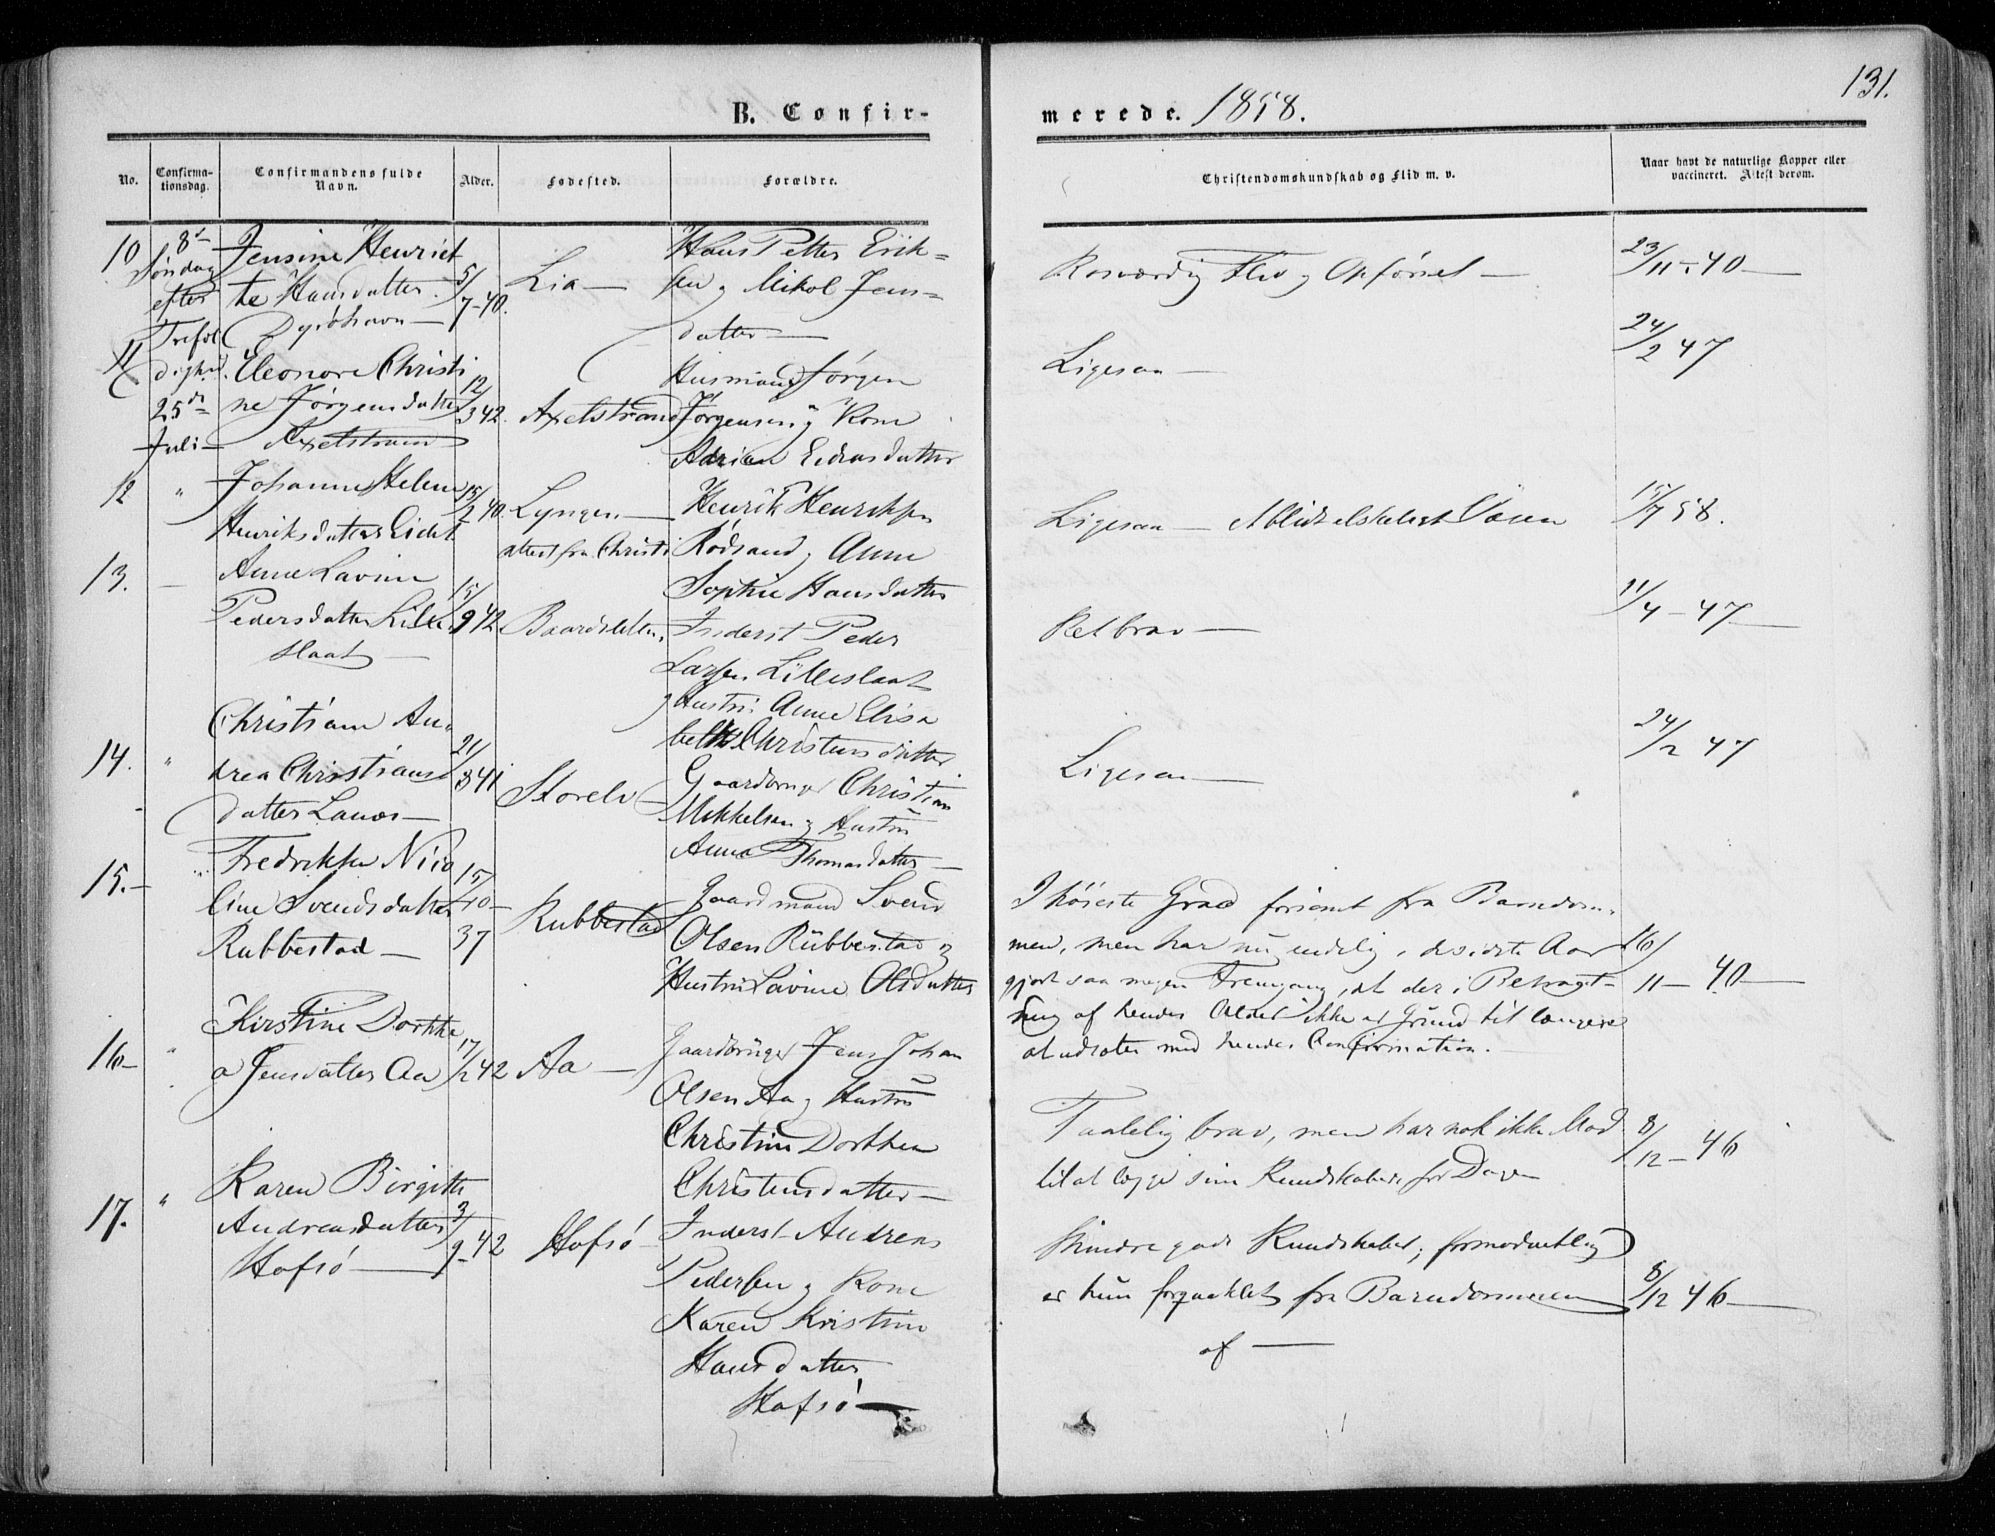 131.
B. Confir-
merede. 1858.
No.
Confirma-
tionsdag.
Confirmandens fulde
Navn.
Alder.
Fødested.
Forældre.
Christendomskundskab og Flid m. v.
Naar havt de naturlige Kopper eller
vaccineret. Attest derom.
10
8de
Søndag
efter
Trefol
dighed.
25de
Juli
Jensine Henriet
te Hansdatter
Dyröhavn
5/7-40.
Lia
Hans Petter Erik-
sen og Mikol Jens-
datter
Rosværdig Flid og Opførsel
23/11-40
11
Eleonore Christi
ne Jørgensdatter
Axelstrand
12/3 42.
Axelstrand
Husmand Jørgen
Jørgensen og Kone
Adrian Endresdatter
Ligesaa
24/2 47
12
"
Johanne Helene
Henriksdatter Eidet
15/2 40.
Lyngen
attest fra Christi
Henrik Henriksen
Rödsand og Anne
Sophie Hansdatter
Ligesaa
15/7 58.
13.
Anne Lavine
Pedersdatter Lille
slaat
15/9 42
Baardsletten
Inderst Peder
Larsen Lilleslaat
og Hustru Anne Elisa
beth Christensdatter
Ret brav
11/4-47
14.
"
Christiane An-
drea Christians
datter Lanæs
21/8 41
Storelv
Gaardbruger Christian
Mikkelsen og Hustru
Anne Thomasdatter
Ligesaa
24/2 47
15.
"
Fredrikke Nico
line Svendsdatter
Rubbestad
15/10-
37
Rubbestad
Gaardmand Svend
Olsen Rubbestad og
Hustru Lavine Olsdatter
I høieste Grad forsømt fra Barndom-
men, men har nu endelig i de sidste Aar
gjort saa megen Fremgang, at der i Betragt-
ning af hendes Alder ikke er Grund til længere
at udsætte med hendes Confirmation.
16/11-40
16
"
Kirstine Dorthe
a Jensdatter Aa
17/2 42
Aa
Gaardbruger Jens Johan
Olsen Aa og Hustru
Christine Dorthea
Christensdatter
Taalelig brav, men har nok ikke Mod
til at lægge sine Kundskaber for Dagen
8/12-46
17.
"
Karen Birgitte
Andreasdatter
Hofsö
3/9-42
Hofsö
Inderst Andreas
Pedersen og Kone
Karen Kristine
Hansdatter
Hofsö
Mindre gode Kundskaber; formodentlig
er hun forqvaklet fra Barndommen
af
8/12 46